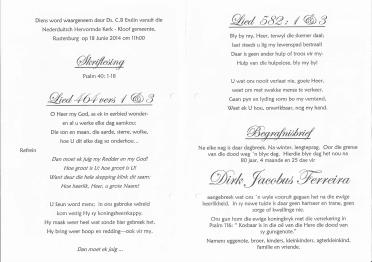 Diens word waargeneem deur Ds. C.B Enslin vanuit die
Nederduitsch Hervormde Kerk - Kloof gemeente,
Rustenburg op 18 Junie 2014 om 11h00
Skriflesing
Psalm 40: 1-18
Lied 464 vers 1 & 3
O Heer my God, as ek in eerbied wonder-
en al u werke elke dag aanskou:
Die son en maan, die aarde, sterre, wolke,
hoe U dit elke dag so onderhou...
Refrein
Dan moet ek juig my Redder en my God!
Hoe groot is U! hoe groot is U!
Want deur die hele skepping klink dit saam:
Hoe heerlik, Heer, u grote Naam!
U Seun word mens: in ons gebroke wêreld
kom vestig Hy sy koningsheerskappy.
Hy maak weer heel wat sonde hier gebreek het.
Hy bring weer hoop en redding—ook vir my.
Dan moet ek juig ...
Lied 582: 1 & 3
Bly by my, Heer, terwyl die skemer daal;
laat steeds u lig my lewenspad bestraal!
Daar is geen ander hulp of troos vir my.
Hulp van die hulpelose, bly my by!
U wat ons nooit verlaat nie, goeie Heer,
weet om met swakke mense te verkeer.
Gaan pyn en lyding soms bo my verstand,
Weet ek U hou, onwrikbaar, nog my hand.
Begrafnisbrief
Na elke nag is daar dagbreek. Na winter, lengtegslag. Oor die grense
van die dood wag 'n blye dag. Hierdie blye dag het nou na
80 jaar, 4 maande en 25 dae vir
Dirk Jacobus Ferreira
aangebreek wat ons 'n wyle vooruit gegaan het na die ewige
heerlikheid. In sy nuwe tuiste is daar geen hartseer en trane, geen
sorge of kwellinge nie.
Ons gun hom die ewige koninkryk met die versekering in
Psalm 116: " Kosbaar is in die oë van die Here die dood van
sy gunsgenote."
Namens eggenote, broer, kinders, kleinkinders, agterkleinkind,
familie en vriende.